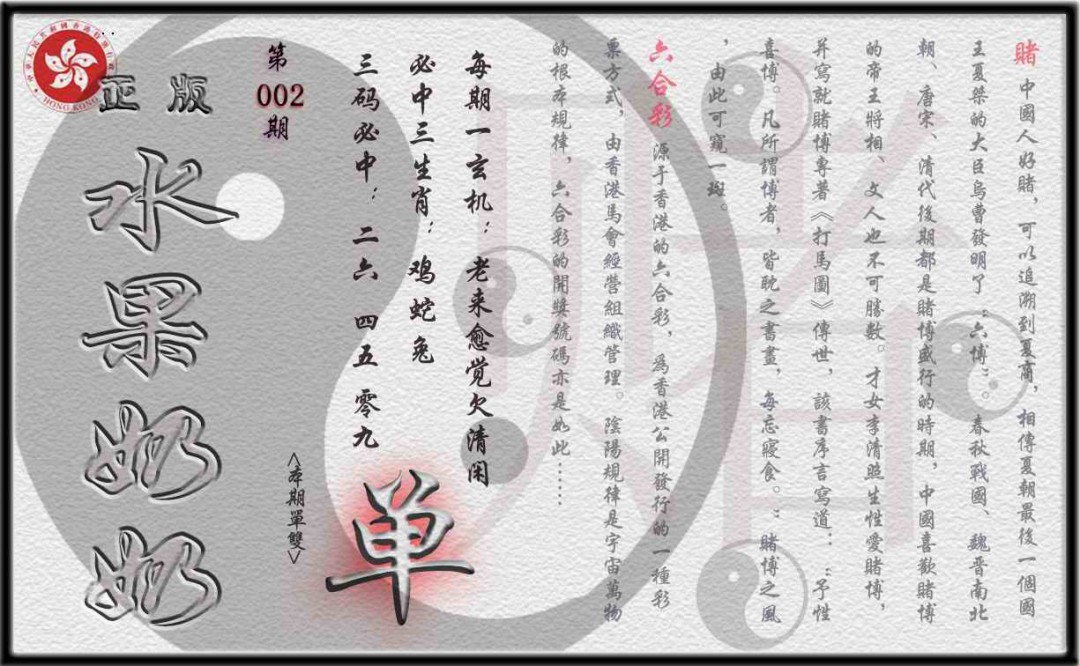 賭 中國人好賭，可以追溯到夏商，相傳夏朝最後一個國
王夏桀的大臣烏曹發明了“六博”。春秋戰國、魏晉南北
朝、唐宋、清代後期都是賭博盛行的時期，中國喜歡賭博
的帝王將相、文人也不可勝數。才女李清照生性愛賭博，
并寫就賭博專著《打馬圖》傳世，該書序言寫道：“予性
喜博。凡所謂博者，皆耽之書畫，每忘寢食。”賭博之風
，由此可窺一斑。
六合彩 源于香港的六合彩，爲香港公開發行的一種彩
票方式，由香港馬會經營組織管理。陰陽規律是宇宙萬物
的根本規律，六合彩的開獎號碼亦是如此……
每期一玄机：老来愈觉欠清闲
必中三生肖：鸡蛇兔
三码必中：二六 四五 零九
单
<本期單雙>
第
002
期
正版
水果奶奶
HONG KONG
賭